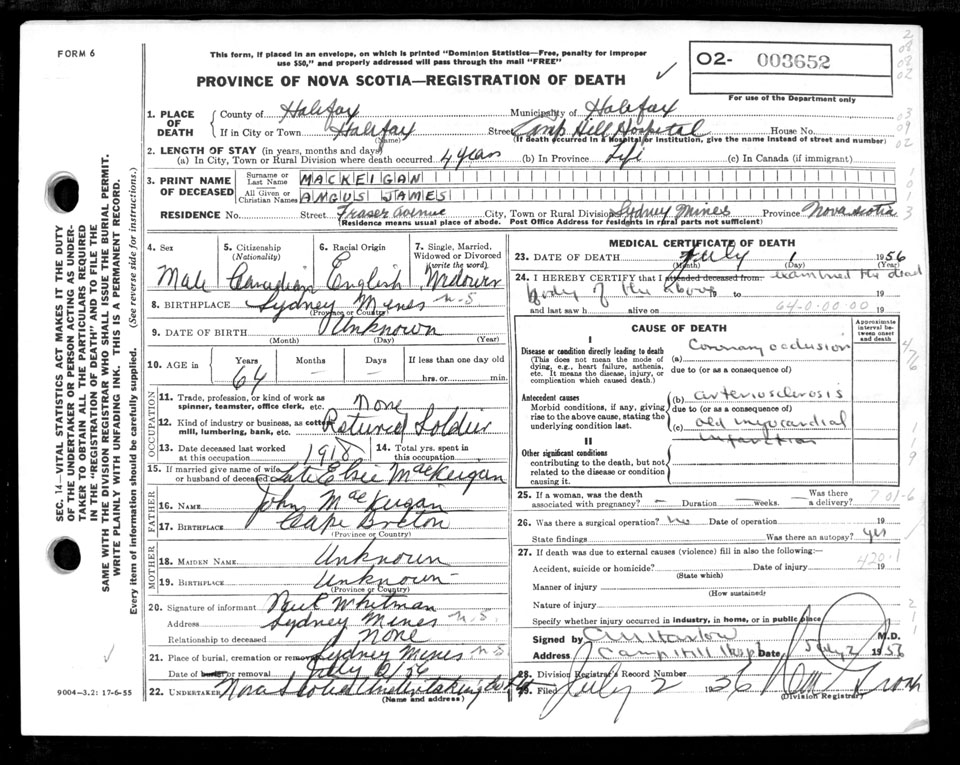 FORM 6
This form, if placed in an envelope, on which is printed "Dominion Statistics—Free, penalty for improper
use $50," and properly addressed will pass through the mail "FREE"
PROVINCE OF NOVA SCOTIA—REGISTRATION OF DEATH
O2- 003652
For use of the Department only
1. PLACE OF DEATH
County of Halifax Municipality of Halifax
If in City or Town Halifax Street Camp Hill Hospital House No.
(Name) (If death occurred in a hospital or institution, give the name instead of street and number)
2. LENGTH OF STAY (in years, months and days)
(a) In City, Town or Rural Division where death occurred 4 years (b) In Province Life (c) In Canada (if immigrant)
3. PRINT NAME OF DECEASED
Surname or Last Name MACKEIGAN
All Given or Christian Names ANGUS JAMES
RESIDENCE No. Street Fraser Avenue City, Town or Rural Division Sydney Mines Province Nova Scotia
(Residence means usual place of abode. Post Office Address for residents in rural parts not sufficient)
4. Sex Male
5. Citizenship (Nationality) Canadian
6. Racial Origin English
7. Single, Married, Widowed or Divorced (write the word) Widower
8. BIRTHPLACE Sydney Mines N.S.
(Province or Country)
9. DATE OF BIRTH Unknown
(Month) (Day) (Year)
10. AGE in Years 64 Months — Days — If less than one day old
hrs. or min.
OCCUPATION
11. Trade, profession, or kind of work as
spinner, teamster, office clerk, etc. None
12. Kind of industry or business, as cotton
mill, lumbering, bank, etc. Retured Soldier
13. Date deceased last worked at this occupation 1918
14. Total yrs. spent in this occupation
15. If married give name of wife
or husband of deceased Late Elsie MacKeigan
FATHER
16. NAME John MacKeigan
17. BIRTHPLACE Cape Breton
(Province or Country)
MOTHER
18. MAIDEN NAME Unknown
19. BIRTHPLACE Unknown
(Province or Country)
20. Signature of informant Whitman
Address Sydney Mines N.S.
Relationship to deceased None
21. Place of burial, cremation or removal Sydney Mines N.S.
Date of burial or removal July
22. UNDERTAKER Nova Scotia Undertaking
(Name and address)
MEDICAL CERTIFICATE OF DEATH
23. DATE OF DEATH July 1 1956
(Month) (Day) (Year)
24. I HEREBY CERTIFY that I attended deceased from examined the dead
body of the above to 19
and last saw h alive on 64-0-00-00 19
CAUSE OF DEATH
Approximate interval between onset and death
I
Disease or condition directly leading to death
(This does not mean the mode of dying, e.g., heart failure, asthenia, etc. It means the disease, injury, or complication which caused death.)
(a) Coronary occlusion
due to (or as a consequence of)
Antecedent causes
Morbid conditions, if any, giving rise to the above cause, stating the underlying condition last.
(b) arteriosclerosis
due to (or as a consequence of)
(c) old myocardial
infarction
II
Other significant conditions
contributing to the death, but not related to the disease or condition causing it.
25. If a woman, was the death
associated with pregnancy? — Duration — weeks. Was there a delivery? —
26. Was there a surgical operation? no Date of operation 19
State findings Was there an autopsy? yes
27. If death was due to external causes (violence) fill in also the following:—
420.1
Accident, suicide or homicide? Date of injury 19
(State which)
Manner of injury
(How sustained)
Nature of injury
Specify whether injury occurred in industry, in home, or in public place
Signed by M.D.
Address Camp Hill Hosp Date July 2 1956
28. Division Registrar's Record Number
29. Filed July 2 1956
(Division Registrar)
SEC. 14—VITAL STATISTICS ACT MAKES IT THE DUTY
OF THE UNDERTAKER OR PERSON ACTING AS UNDERTAKER TO OBTAIN ALL THE PARTICULARS REQUIRED
IN THE "REGISTRATION OF DEATH" AND TO FILE THE
SAME WITH THE DIVISION REGISTRAR WHO SHALL ISSUE THE BURIAL PERMIT.
WRITE PLAINLY WITH UNFADING INK. THIS IS A PERMANENT RECORD.
Every item of information should be carefully supplied. (See reverse side for instructions.)
9004-3.2: 17-6-55